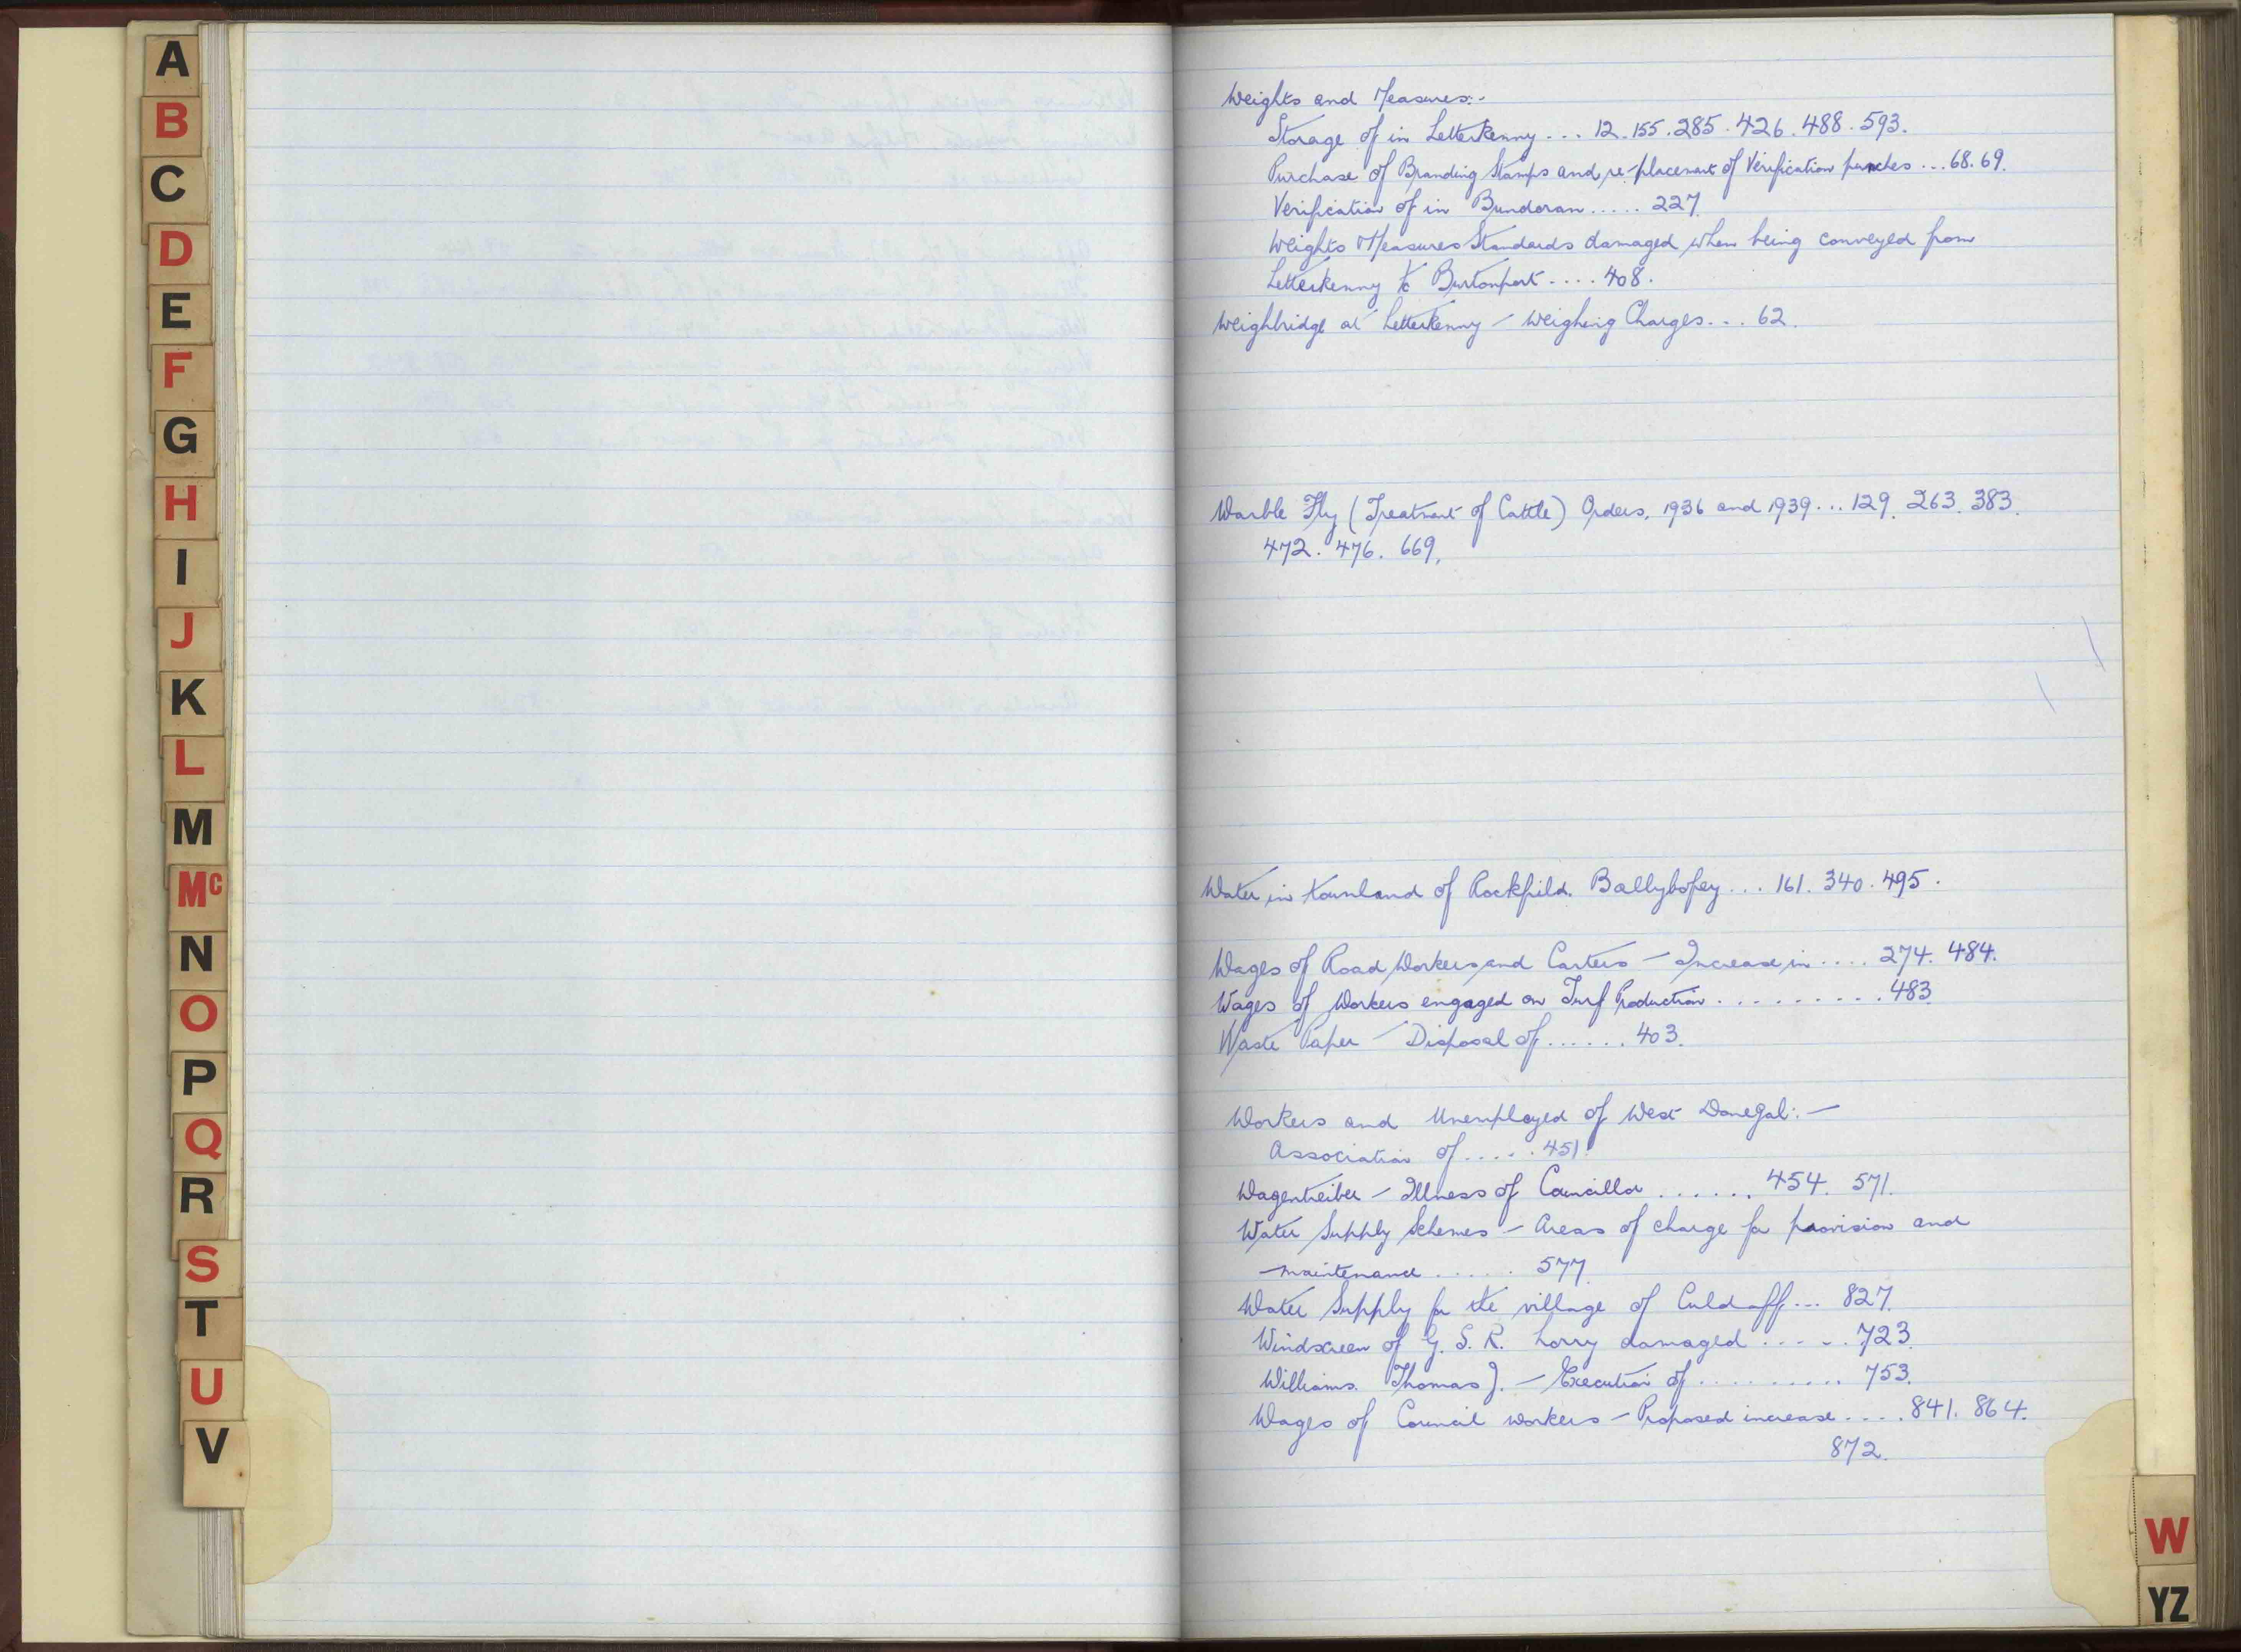 A
B
C
D
E
F
G
H
I
J
K
L
M
Mc
N
O
P
Q
R
S
T
U
V
Weights and Measures:-
Storage of in Letterkenny ... 12. 155. 285. 426. 488. 593.
Purchase of Branding Stamps and re-placement of Verification punches ... 68. 69.
Verification of in Bundoran ..... 227.
Weights Measures Standards damaged when being conveyed from
Letterkenny to Burtonport .... 408.
Weighbridge at Letterkenny - Weighing Charges ... 62.
Warble Fly (Treatment of Cattle) Orders, 1936 and 1939 ... 129. 263. 383.
472. 476. 669.
Water in townland of Rockfield. Ballybofey ... 161. 340. 495.
Wages of Road Workers and Carters - Increase in .... 274. 484.
Wages of Workers engaged on Turf Production .......... 483.
Waste Paper - Disposal of ...... 403.
Workers and Unemployed of West Donegal:-
Association of ..... 451.
Wagentreiber - Illness of Councillor ....... 454. 571.
Water Supply Schemes - Areas of charge for provision and
maintenance ...... 577.
Water Supply for the village of Culdaff ... 827.
Windscreen of G. S. R. Lorry damaged ..... 723.
Williams. Thomas J. - Execution of .......... 753.
Wages of Council workers - Proposed increase .... 841. 864.
872.
W
YZ